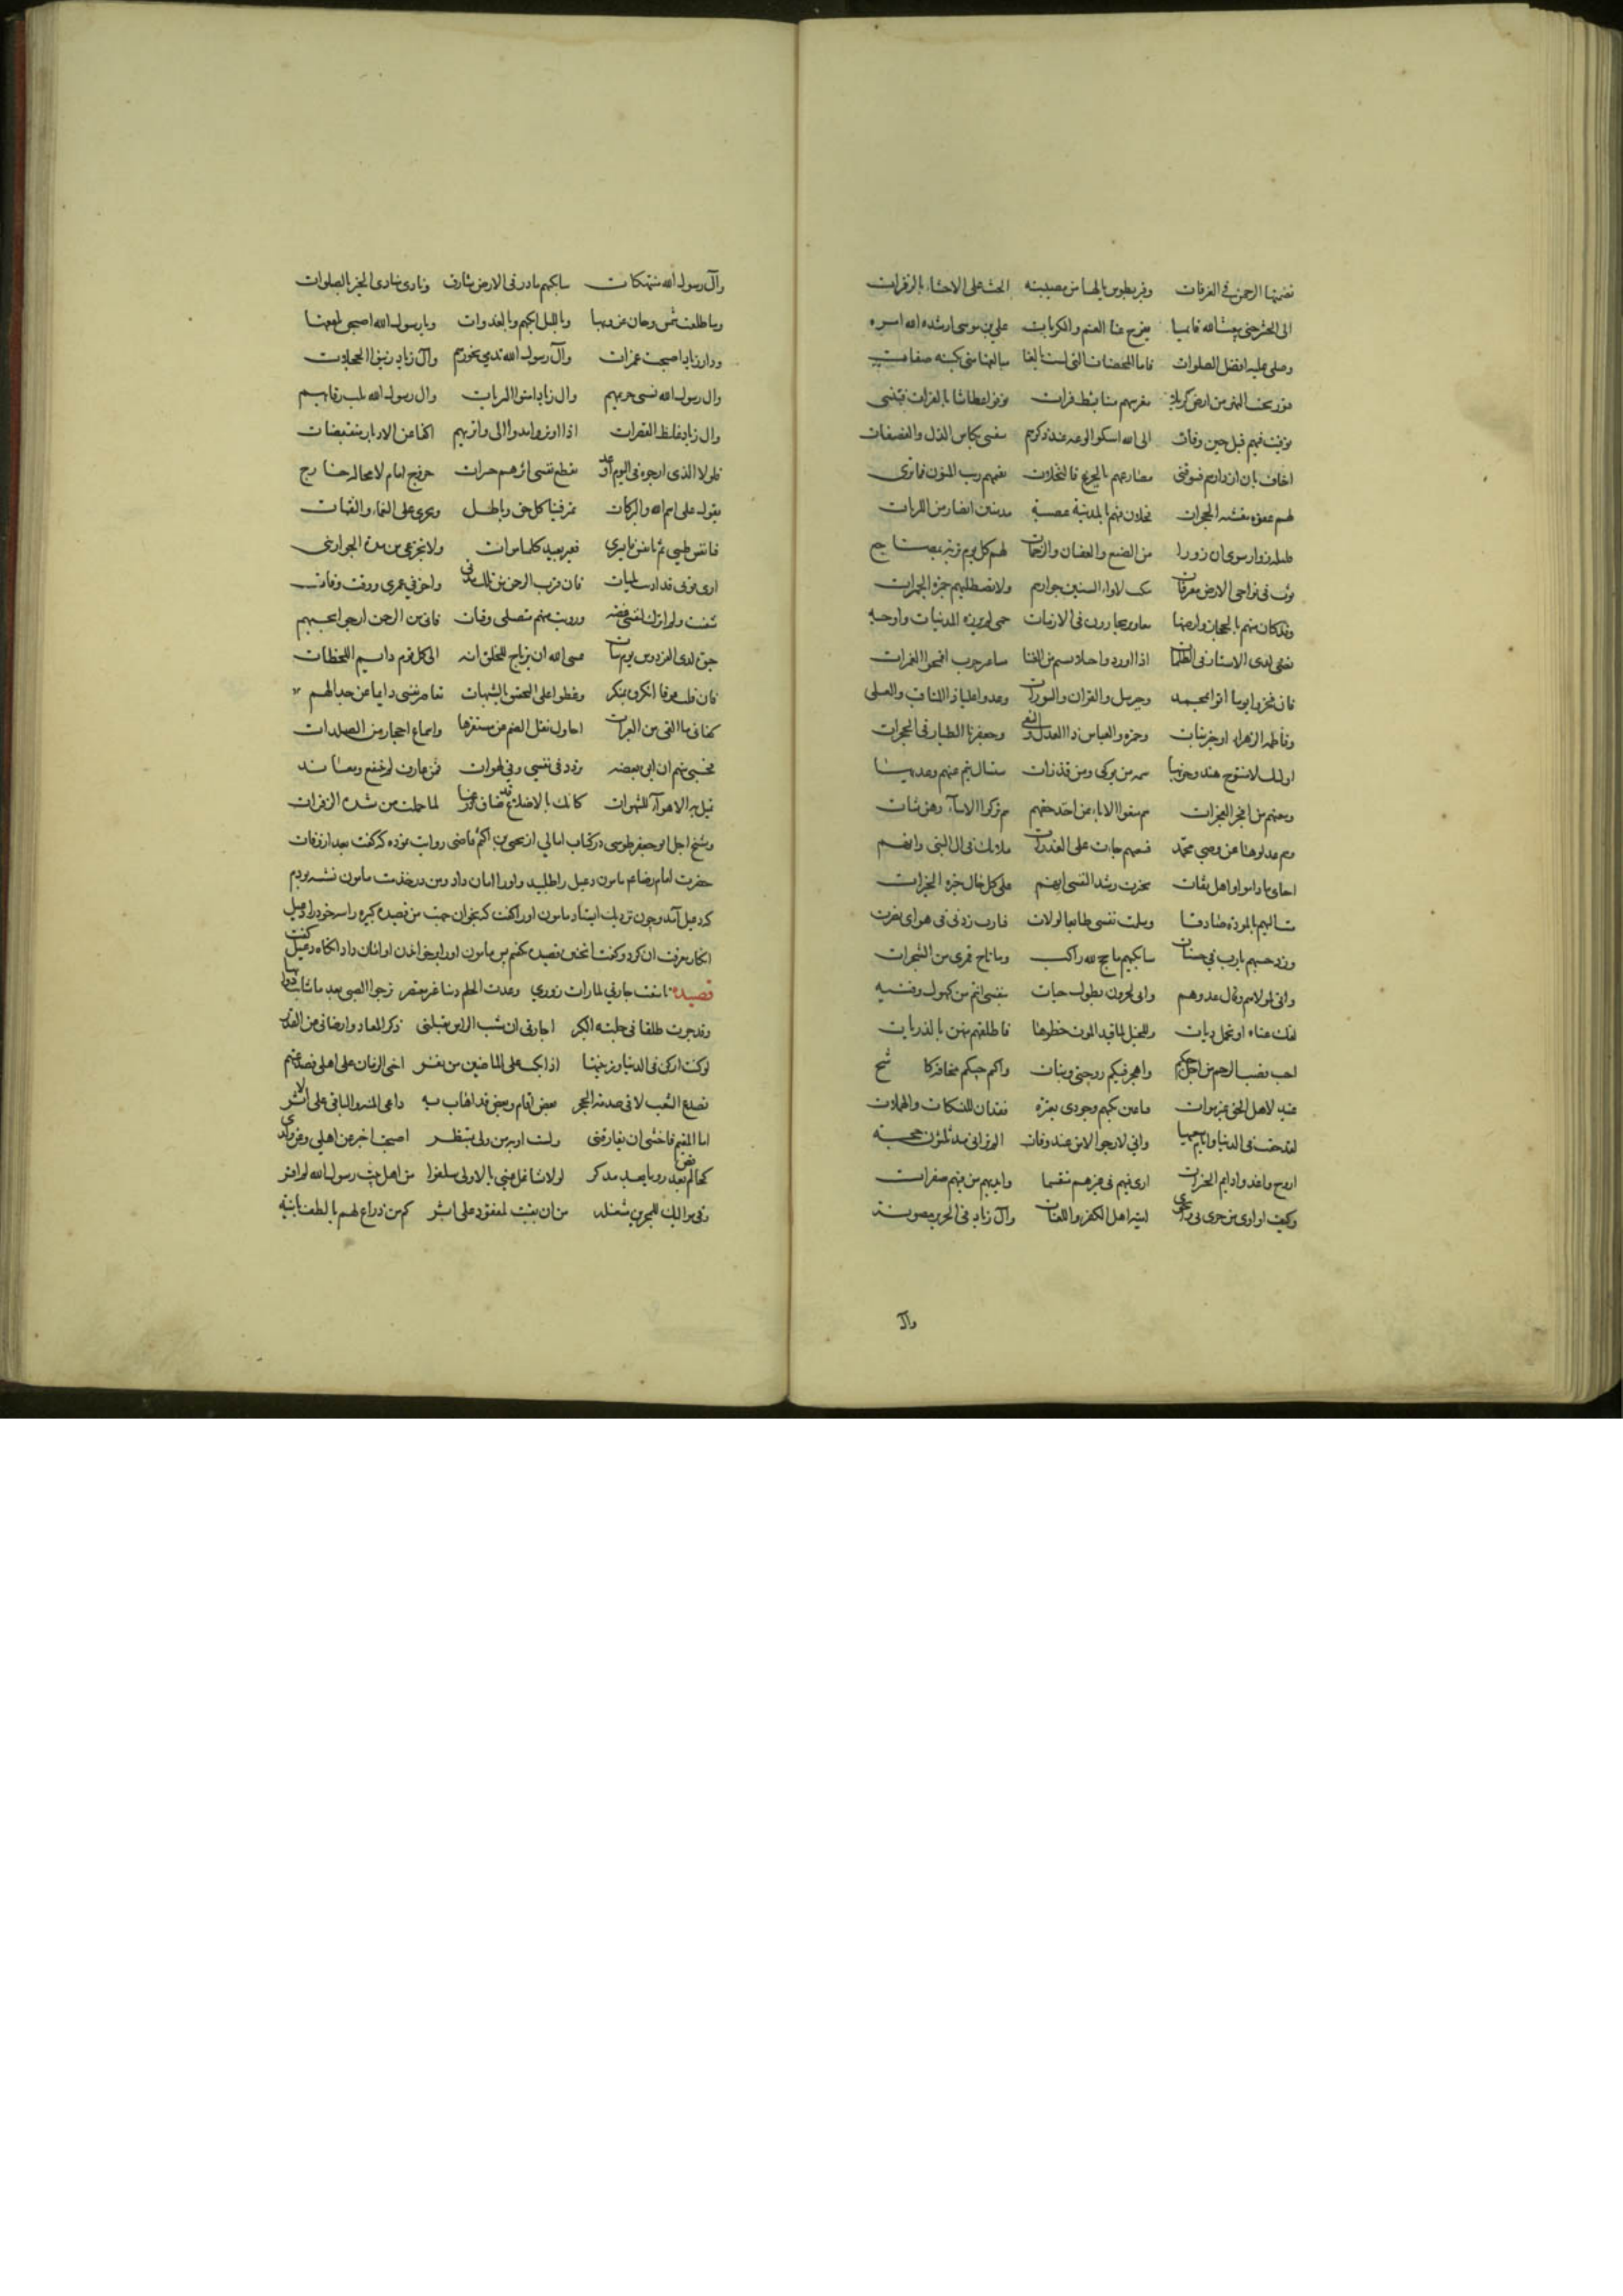 تضمنها الرحمن في الغرفات وقبر بطوس يا لها من مصيبة الحت على الاحشاء بالزفرات
الى الحشر حتى يبعث الله قايما يفرج عنا الغم والكربات علي بن موسى ارشد الله امره
وصلى عليه افضل الصلوات فاما الممضات التي لست بالغا مبالغها مني بكنه صفات
قبور بجنب النهر من ارض كربلا معرسهم منها بشط فرات توفوا عطاشا بالفرات فليتني
توفيت فيهم قبل حين وفات الى الله اشكو لوعة عند ذكرهم سقتني بكاس الذل والفضعات
اخاف بان ازدارهم فتشوقني مصارعهم بالجزع فالنخلات تقسمهم ريب المنون فما ترى
لهم عقوة مغشية الحجرات خلا ان منهم بالمدينة عصبة مدينين انضاء من اللزبات
قليلة زوار سوى ان زورا من الضبع والعقبان والرخمات لهم كل يوم تربة بمضاجع
ثوت في نواحي الارض مفترقات تنكب لاواء السنين جوارهم ولا تصطليهم جمرة الجمرات
وقد كان منهم بالحجاز وارضها مغاوير نجارون في الازمات حمى لم تزره المدنيات واوجه
تضئ لدى الاستار في الظلمات اذا اوردوا خيلا بسمر من القنا مساعر حرب اقحموا الغمرات
فان فخروا يوما اتوا بمحمد وجبريل والفرقان والسورات وعدوا عليا ذا المناقب والعلى
وفاطمة الزهراء خير بنات وحمزة والعباس ذا العدل والتقى وجعفرنا الطيار في الحجرات
اولئك لا منتوج هند وحزبها سمية من نوكى ومن قذرات ستسال تيم عنهم وعديها
وبيعتهم من افجر الفجرات هم منعوا الاباء عن اخذ حقهم هم تركوا الابناء رهن شتات
وهم عدلوها عن وصي محمد فبيعتهم جاءت على الغدرات ملامك في ال النبي وانهم
احباي ما داموا واهل ثقات تخيرت رشدا لنفسي انهم على كل حال خيرة الخيرات
نبذت اليهم بالمودة صادقا وسلمت نفسي طايعا لولات فيا رب زدني في هواي بصيرت
وزد حبهم يا رب في حسنات سابكيهم ما حج لله راكب وما ناح قمري من الشجرات
واني لمولاهم وقال عدوهم واني لمحزون بطول حيات بنفسي انتم من كهول وفتية
لفك عناة او لحمل ديات وللخيل لما قيد الموت خطوها فاطلقتم منهن بالذريات
احب قصي الرحم من اجل حبكم واهجر فيكم زوجتي وبنات واكتم حبيكم مخافة كاشح
عنيد لاهل الحق غير موات فيا عين بكيهم وجودي بعبرة فقد ان للتسكاب والهملات
لقد خفت في الدنيا وايام سعيها واني لارجو الامن عند وفات الم تر اني مذ ثلثون حجة
اروح واغدو دايم الحسرات ارى فيئهم في غيرهم متقسما وايديهم من فيئهم صفرات
وكيف اداوى من جوى بي والجوى امية اهل الكفر واللعنات وال زياد في الحرير مصونة
وآل
وآل رسول الله منتهكات سابكيهم ما ذر في الارض شارق ونادى منادي الخير بالصلوات
وما طلعت شمس وحان غروبها وبالليل ابكيهم وبالغدوات ديار رسول الله اصبحن بلقعا
ودار زياد اصبحت عمرات وآل رسول الله تدمي نحورهم وآل زياد ربة الحجلات
وال رسول الله تسبى حريمهم وال زياد امنوا السربات وال رسول الله نحف جسومهم
وال زياد غلظ القصرات اذا وتروا مدوا الى واتريهم اكفا عن الاوتار منقبضات
فلولا الذي ارجوه في اليوم او غد تقطع نفسي اثرهم حسرات خروج امام لا محالة خارج
يقوم على اسم الله والبركات يميز فينا كل حق وباطل ويجزي على النعماء والنقمات
فيا نفس طيبي ثم يا نفس ابشري فغير بعيد كلما هو ات ولا تجزعي من مدة الجور انني
ارى قوتي قد اذنت بثبات فان قرب الرحمن من تلك مدتي واخر في عمري ووقت وفات
شفيت ولم اترك لنفسي غصة ورويت منهم منصلي وقنات فاني من الرحمن ارجو بحبهم
حيوة لدى الفردوس غير بتات عسى الله ان يرتاح للخلق انه الى كل قوم دايم اللحظات
فان قلت عرفا انكروه بمنكر وغطوا على التحقيق بالشبهات تقاصر نفسي دايما عن جدالهم
كفاني ما القى من العبرات احاول نقل الصم من مستقرها واسماع احجار من الصلدات
فحسبي منهم ان ابوء بغصة تردد في نفسي وفي لهوات فمن عارف لم ينتفع ومعاند
تميل به الاهواء للشهوات كانك بالاضلاع قد ضاق ذرعها لما حملت من شدة الزفرات
وشيخ اجل ابو جعفر طوسي در كتاب امالي از يحيى بن اكثم قاضي روايت نموده كه گفت بعد از وفات
حضرت امام رضا ع مامون دعبل را طلبيد و او را امان داد و من در خدمت مامون نشسته بودم
كه دعبل آمد و چون نزديك ايستاد مامون او را گفت كه بخوان جهت من قصيده كبيره را سر خود را دعبل
انكار معرفت ان كرد و گفت انچنين قصيده نگفتم پس مامون او را بر خواندن او امان داد انگاه دعبل گفت
قصيده تاسفت جارتي لما رات زوري وعدت الحلم ذنبا غير مغتفر ترجو الصبى بعد ما شابت ذوايبها
وقد جرت طلقا في حلبة الكبر اجارتي ان شيب الراس نبلني ذكر المعاد وارضاني عن القدر
لو كنت اركن للدنيا وزينتها اذا بكيت على الماضين من نفر اخنى الزمان على اهلي فصدعهم
تصدع الشعب لاقى صدمة الحجر بعض اقام وبعض قد اهاب به داعي المنية والباقي على الاثر
اما المقيم فاخشى ان يفارقني ولست اوبة من ولى بمنتظر اصبحت اخبر عن اهلي وعن ولدي
كحالم قص رويا بعد مدكر لولا تشاغل عيني بالاولى سلفوا من اهل بيت رسول الله لم اقر
وفي مواليك للمحزون مشغلة من ان يبيت لمفقود على اثر كم من ذراع لهم بالطف بائنة